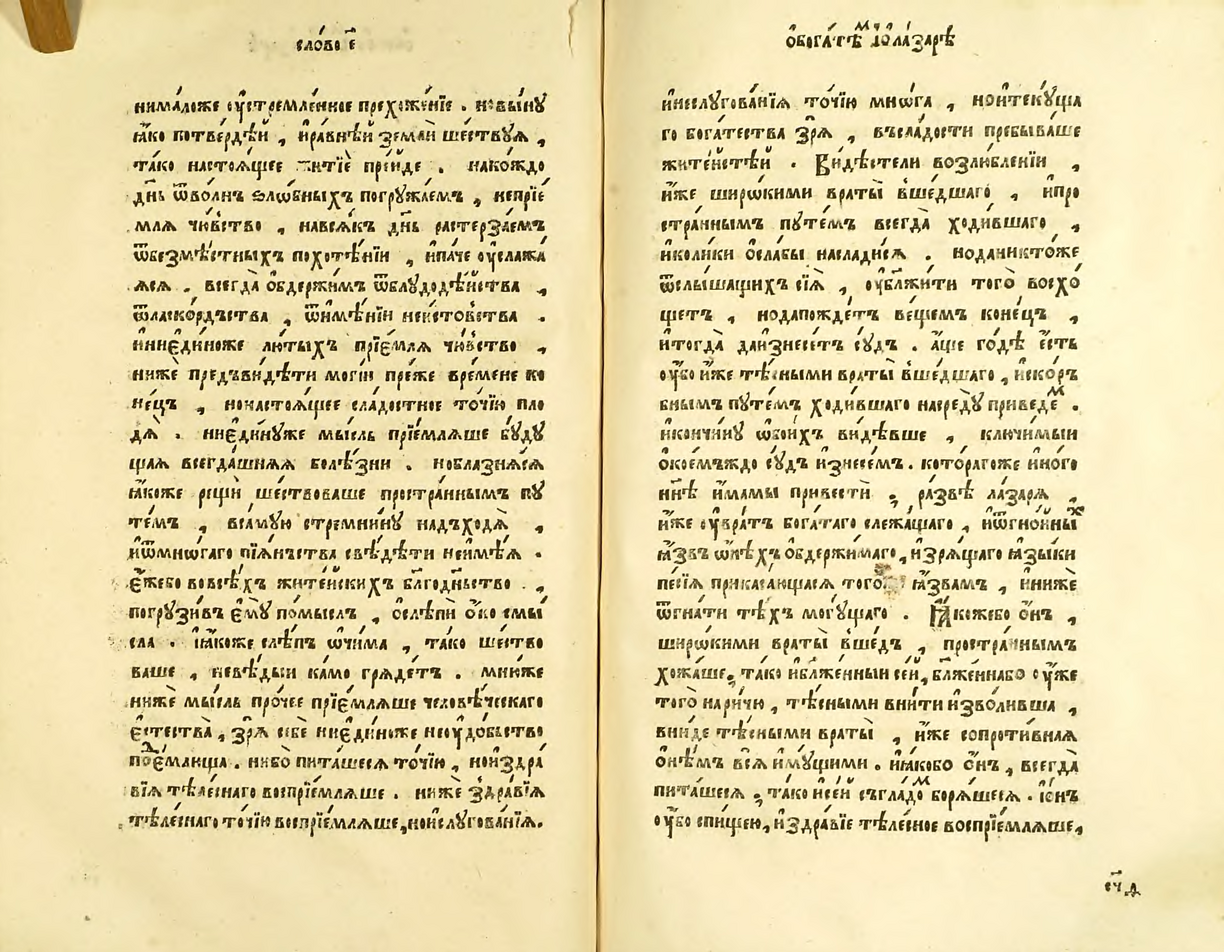 сло́во е҃
нима́ложе оу҆стремле́нное прехоже́нїе . но вы́нꙋ
ꙗ҆́ко потве́рдѣй , и҆ра́внѣй земли̑ ше́ствꙋѧ ,
та́ко настоѧ́щее житїѐ пре́йде . нако́ждо
дн҃ь ѿво́лнъ ѕло́вныхъ погрꙋжа́емъ , непрїе́
млѧ чю́вство , навсѧ́къ дн҃ь растерза́емъ
ѿбезмѣ́стныхъ похотѣ́нїи , и҆па́че оу҆слажа́
ѧсѧ . всегда̀ о҆бдержи́мъ ѿблꙋдодѣ́йства ,
ѿласко́рдъства , ѿи҆мѣ́нїи неи́стовъства .
и҆ниє҆ди́ноже лю́тыхъ прїе́млѧ чю́вство ,
нижѐ предъви́дѣти моги́и пре́же вре́мене ко
не́цъ , нонастоѧ́щее сла́достное то́чїю пло
дѧ̀ . ниє҆ди́нꙋже мы́сль прїе́млѧше бꙋ́дꙋ
щаѧ всегда́шнѧѧ болѣ́зни . ноблазнѧ́ѧсѧ
ꙗ҆́коже рещѝ ше́ствоваше простра́ннымъ пꙋ
те́мъ , всѧ́мꙋю стремни́нꙋ надъходѧ̀ ,
и҆ѿмно́гаго пїѧ́ньства свѣ́дѣти неи҆мѣ́ѧ .
є҆́жебо вовсѣ́хъ жите́йскихъ благоде́ньство . ,
погрꙋзи́въ є҆мꙋ̀ по́мыслъ , о҆слѣпѝ о҆́ко смы́
сла . ꙗ҆́коже слѣ́пъ ѡ҆чи́ма , та́ко ше́ство
ваше , невѣ́дыи ка́мо грѧде́тъ . мни́же
нижѐ мы́сль про́чее прїе́млѧше человѣ́ческаго
є҆стества̀ , зрѧ̀ себѐ ниє҆ди́ноже неꙋдо́бьство
поє҆́млюща . ни́бо пита́шесѧ то́чїю , нои҆здра́
вїѧ тѣле́снаго воспрїе́млѧше . нижѐ здра́вїѧ
тѣле́снаго то́чїю воспрїе́млѧше , нои҆слꙋгова́нїѧ .
ѡ҆бога́тѣмъ и҆ ѡ҆ ла́зарѣ
и҆неслꙋгова́нїѧ то́чїю мно́га , нои҆теку́ща
го бога́тества зрѧ̀ , въсла́дости пребыва́ше
жите́йстѣй . Ви́дѣстели возлю́бленїи ,
и҆́же широ́кими враты̀ вше́дшаго , и҆про
стра́ннымъ пꙋте́мъ всегда̀ ходи́вшаго ,
и҆коли́ки о҆сла́бы наслади́сѧ . нодани́ктоже
ѿслы́шащихъ сїѧ̀ , оу҆бл҃жи́ти того̀ восхо́
щетъ , нодапожде́тъ ве́щемъ коне́цъ ,
и҆тогда̀ даи҆знесе́тъ сꙋ́дъ . а҆́ще го́дѣ є҆́сть
оу҆́бо и҆́же тѣ́сными враты̀ вше́дшаго , и҆ско́ръ
бнымъ пꙋте́мъ ходи́вшаго насредꙋ̀ приведе́мъ .
и҆кончи́нꙋ ѡ҆бои́хъ ви́дѣвше , ключи́мыи
о҆кое́мъждо сꙋ́дъ и҆знесе́мъ . кото́рагоже и҆но́го
нн҃ѣ и҆́мамы привестѝ , ра́звѣ ла́зарѧ ,
и҆́же оу҆вра́тъ бога́таго слежа́щаго , и҆ѿгно́йныхъ
ꙗ҆́звъ ѡ҆нѣ́хъ о҆бдержи́маго , и҆зрѧ́щаго ꙗ҆зы́ки
пе́сїѧ прикаса́ющаѧсѧ того̀ ꙗ҆́звамъ , и҆нижѐ
ѿгна́ти тѣ́хъ могꙋ́щаго . Ꙗ҆́кожебо о҆́нъ ,
широ́кими враты̀ вше́дъ , простра́ннымъ
хожа́ше , та́ко и҆бл҃же́нныи се́й , бл҃же́ннабо оу҆́же
того̀ нарѝчю , тѣ́сными вни́ти и҆зво́ливша ,
вни́де тѣ́сными враты̀ , и҆́же сопроти́внаѧ
о҆нѣ́мъ всѧ̀ и҆мꙋ́щими . и҆ꙗ҆́кобо о҆́нъ , всегда̀
пита́шесѧ , та́ко и҆се́й съгла́домъ борѧ́шесѧ . і҆о҆́нъ
оу҆́бо спи́щею , и҆здра́вїе тѣле́сное воспрїе́млѧше ,
сч҃д